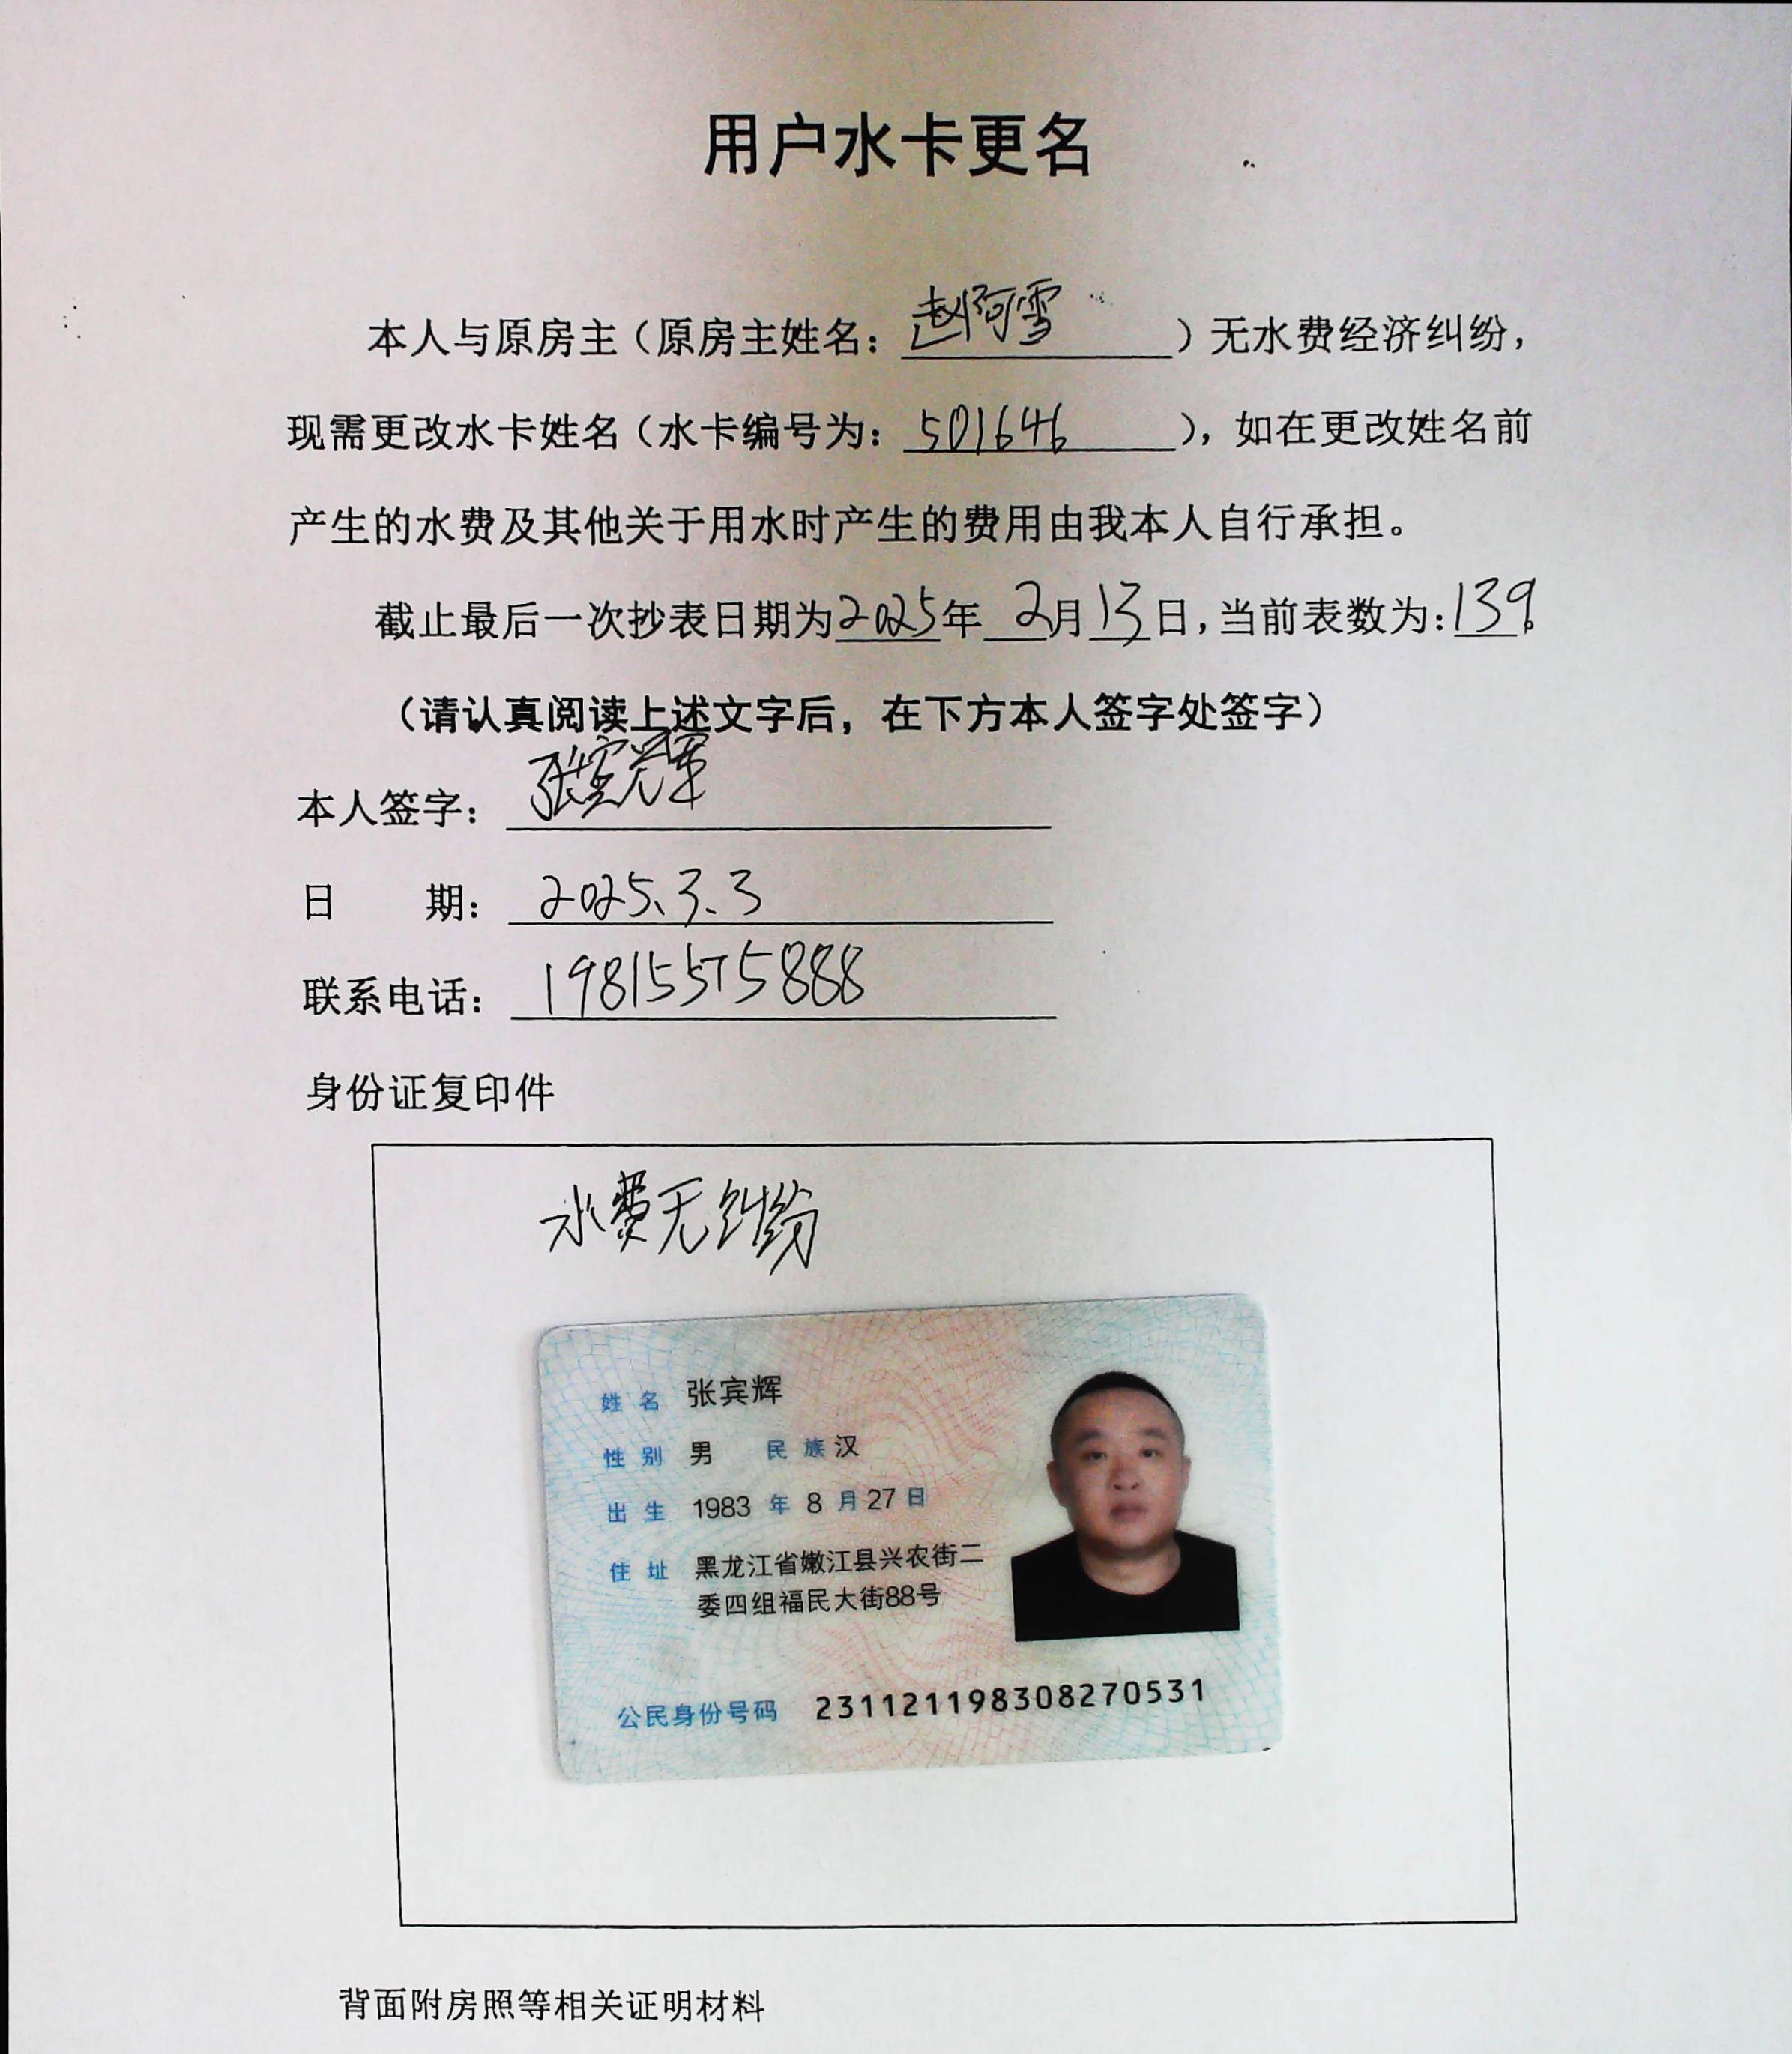 用户水卡更名
本人与原房主（原房主姓名：赵阿雪）无水费经济纠纷，
现需更改水卡姓名（水卡编号为：501646），如在更改姓名前
产生的水费及其他关于用水时产生的费用由我本人自行承担。
截止最后一次抄表日期为2025年2月13日，当前表数为：139。
（请认真阅读上述文字后，在下方本人签字处签字）
本人签字：张宾辉
日 期：2025、3、3
联系电话：19815575888
身份证复印件
水费无纠纷
姓名 张宾辉
性别 男 民族 汉
出生 1983 年 8 月 27 日
住址 黑龙江省嫩江县兴农街二
委四组福民大街88号
公民身份号码 231121198308270531
背面附房照等相关证明材料